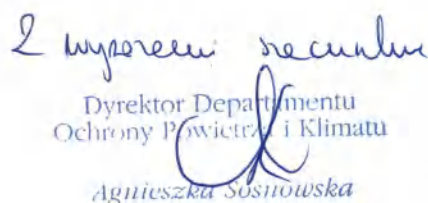 Z wyrazami szacunku
Dyrektor Departamentu
Ochrony Powietrza i Klimatu
Agnieszka Sosnowska